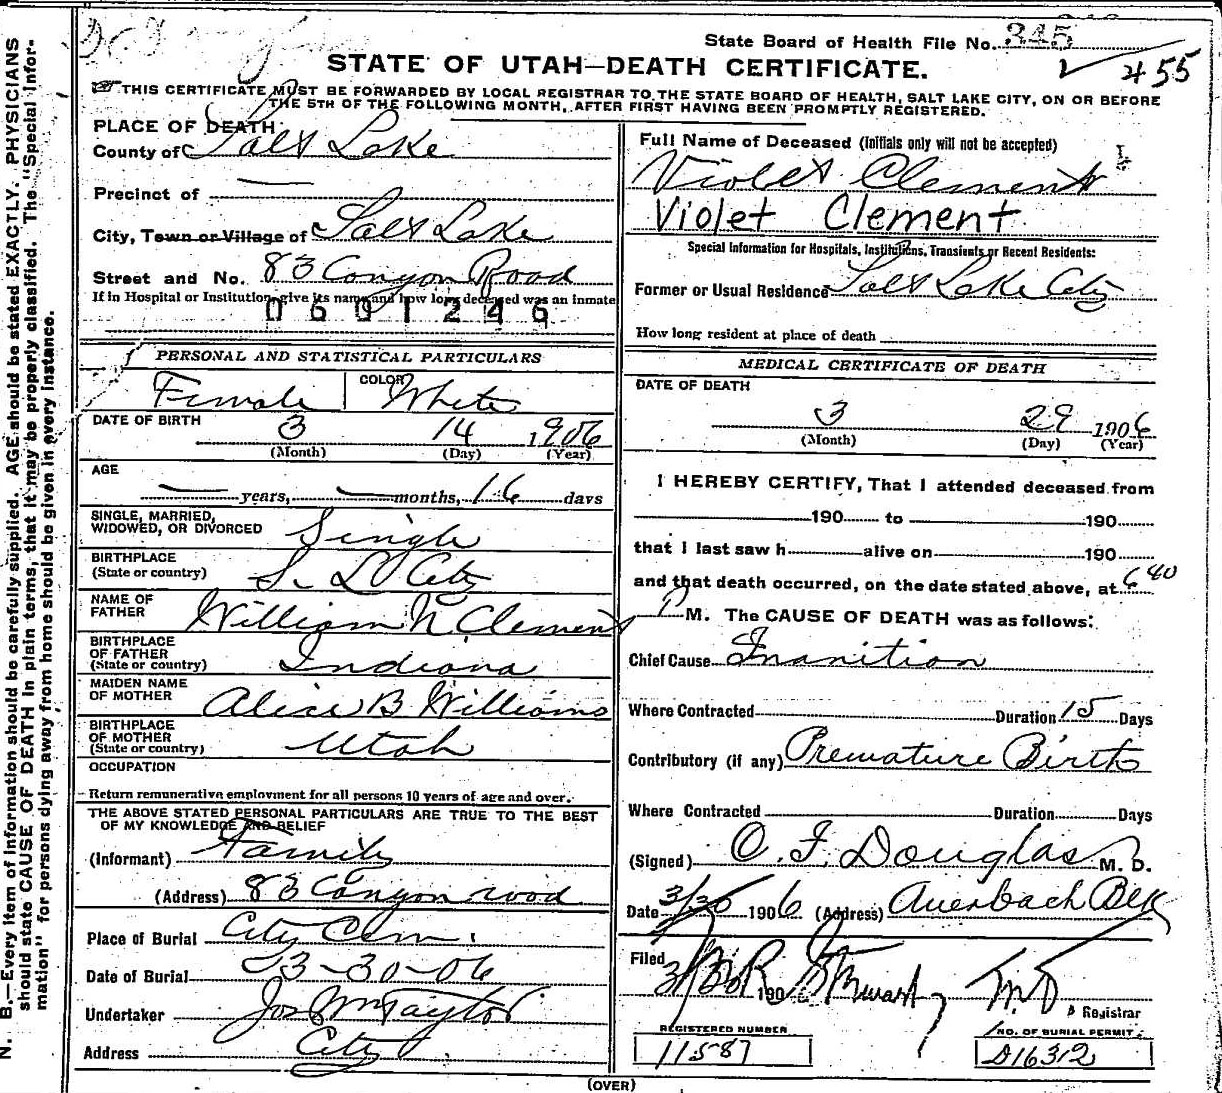 State Board of Health File No. 345
455
STATE OF UTAH—DEATH CERTIFICATE.
THIS CERTIFICATE MUST BE FORWARDED BY LOCAL REGISTRAR TO THE STATE BOARD OF HEALTH, SALT LAKE CITY, ON OR BEFORE
THE 5TH OF THE FOLLOWING MONTH, AFTER FIRST HAVING BEEN PROMPTLY REGISTERED.
N. B.—Every item of information should be carefully supplied. AGE should be stated EXACTLY. PHYSICIANS
should state CAUSE OF DEATH in plain terms, that it may be properly classified. The "Special Infor-
mation" for persons dying away from home should be given in every instance.
PLACE OF DEATH
County of Salt Lake
Precinct of —
City, Town or Village of Salt Lake
Street and No. 83 Canyon Road
If in Hospital or Institution, give its name and how long deceased was an inmate
0601246
PERSONAL AND STATISTICAL PARTICULARS
Female COLOR White
DATE OF BIRTH 3 14 1906
(Month) (Day) (Year)
AGE
— years, — months, 16 days
SINGLE, MARRIED,
WIDOWED, OR DIVORCED Single
BIRTHPLACE
(State or country) S. L. City
NAME OF
FATHER William N. Clement
BIRTHPLACE
OF FATHER
(State or country) Indiana
MAIDEN NAME
OF MOTHER Alice B Williams
BIRTHPLACE
OF MOTHER
(State or country) Utah
OCCUPATION
Return remunerative employment for all persons 10 years of age and over.
THE ABOVE STATED PERSONAL PARTICULARS ARE TRUE TO THE BEST
OF MY KNOWLEDGE AND BELIEF
(Informant) Family
(Address) 83 Canyon road
Place of Burial City Cem.
Date of Burial 3-30-06
Undertaker Jos Wm Taylor
Address City
Full Name of Deceased (Initials only will not be accepted)
Violet Clement
Violet Clement
Special Information for Hospitals, Institutions, Transients or Recent Residents:
Former or Usual Residence Salt Lake City
How long resident at place of death
MEDICAL CERTIFICATE OF DEATH
DATE OF DEATH
3 29 1906
(Month) (Day) (Year)
I HEREBY CERTIFY, That I attended deceased from
190 to 190
that I last saw h alive on 190
and that death occurred, on the date stated above, at 6 40
P M. The CAUSE OF DEATH was as follows:
Chief Cause Inanition
Where Contracted Duration 15 Days
Contributory (if any) Premature Birth
Where Contracted Duration Days
(Signed) O. F. Douglas M. D.
Date 3/30 1906 (Address) Auerbach Blk
Filed 190 Stewart M.D. Registrar
REGISTERED NUMBER
11587
NO. OF BURIAL PERMIT
D16312
(OVER)